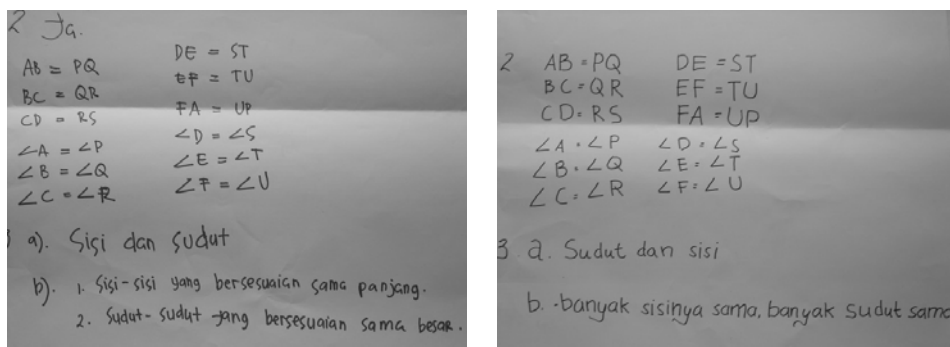 2 Ja.
AB = PQ
BC = QR
CD = RS
∠A = ∠P
∠B = ∠Q
∠C = ∠R
DE = ST
EF = TU
FA = UP
∠D = ∠S
∠E = ∠T
∠F = ∠U
a). Sisi dan sudut
b). 1. Sisi-sisi yang bersesuaian sama panjang.
2. Sudut-sudut yang bersesuaian sama besar.
2 AB = PQ
BC = QR
CD = RS
∠A = ∠P
∠B = ∠Q
∠C = ∠R
DE = ST
EF = TU
FA = UP
∠D = ∠S
∠E = ∠T
∠F = ∠U
3. a. Sudut dan sisi
b. -banyak sisinya sama, banyak sudut sama